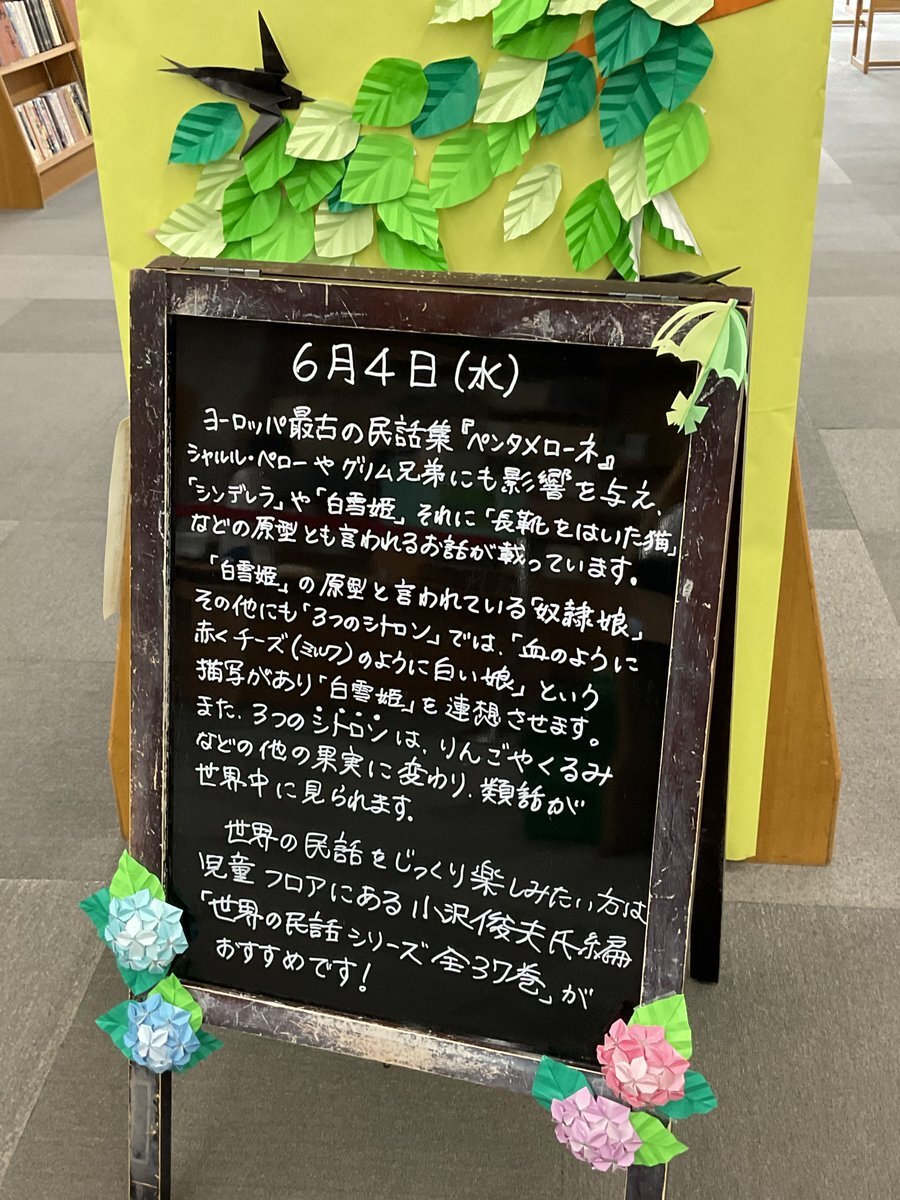 6月4日(水)
ヨーロッパ最古の民話集『ペンタメローネ』
シャルル・ペローやグリム兄弟にも影響を与え、
「シンデレラ」や「白雪姫」それに「長靴をはいた猫」
などの原型とも言われるお話が載っています。
「白雪姫」の原型と言われている「奴隷娘」
その他にも「3つのシトロン」では、「血のように
赤くチーズ(ミルク)のように白い娘」という
描写があり「白雪姫」を連想させます。
また、3つのシトロンは、りんごやくるみ
などの他の果実に変わり、類話が
世界中に見られます。
世界の民話をじっくり楽しみたい方は
児童フロアにある小沢俊夫氏編
「世界の民話シリーズ全37巻」が
おすすめです!